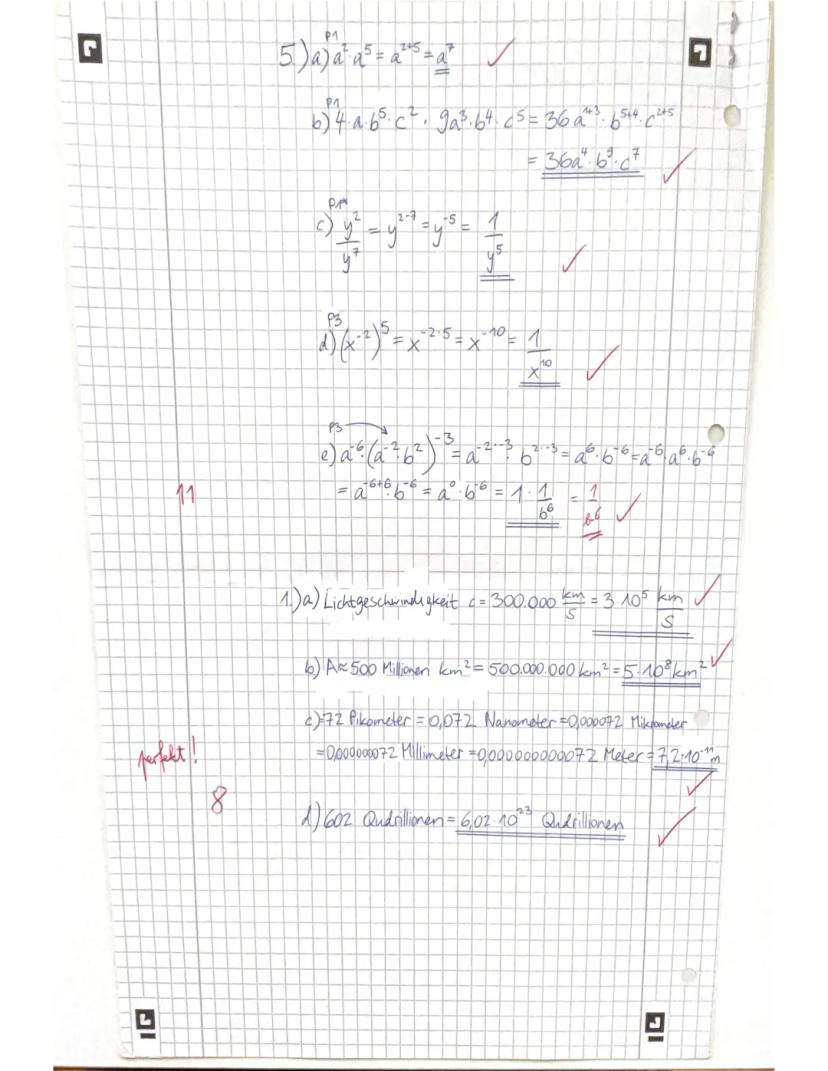 P1
5.) a) a² · a⁵ = a²⁺⁵ = a⁷ ✓
P1
b) 4 · a · b⁵ · c² · 9a³ · b⁴ · c⁵ = 36 a¹⁺³ · b⁵⁺⁴ · c²⁺⁵
= 36a⁴ · b⁹ · c⁷ ✓
c) y²/y⁷ = y²⁻⁷ = y⁻⁵ = 1/y⁵ ✓
P3
d) (x⁻²)⁵ = x⁻²·⁵ = x⁻¹⁰ = 1/x¹⁰ ✓
P3
e) a⁻⁶ · (a⁻² · b²)⁻³ = a⁻²·⁻³ · b²·⁻³ = a⁶ · b⁻⁶ = a⁻⁶ · a⁶ · b⁻⁶
11 = a⁻⁶⁺⁶ · b⁻⁶ = a⁰ · b⁻⁶ = 1 · 1/b⁶ = 1/b⁶ ✓
1.) a) Lichtgeschwindigkeit c = 300.000 km/s = 3 · 10⁵ km/s ✓
b) A ≈ 500 Millionen km² = 500.000.000 km² = 5 · 10⁸ km² ✓
c) 72 Pikometer = 0,072 Nanometer = 0,000072 Mikrometer
perfekt! = 0,000000072 Millimeter = 0,000000000072 Meter = 7,2 · 10⁻¹¹ m ✓
8
d) 602 Qudrillionen = 6,02 · 10²³ Qudrillionen ✓